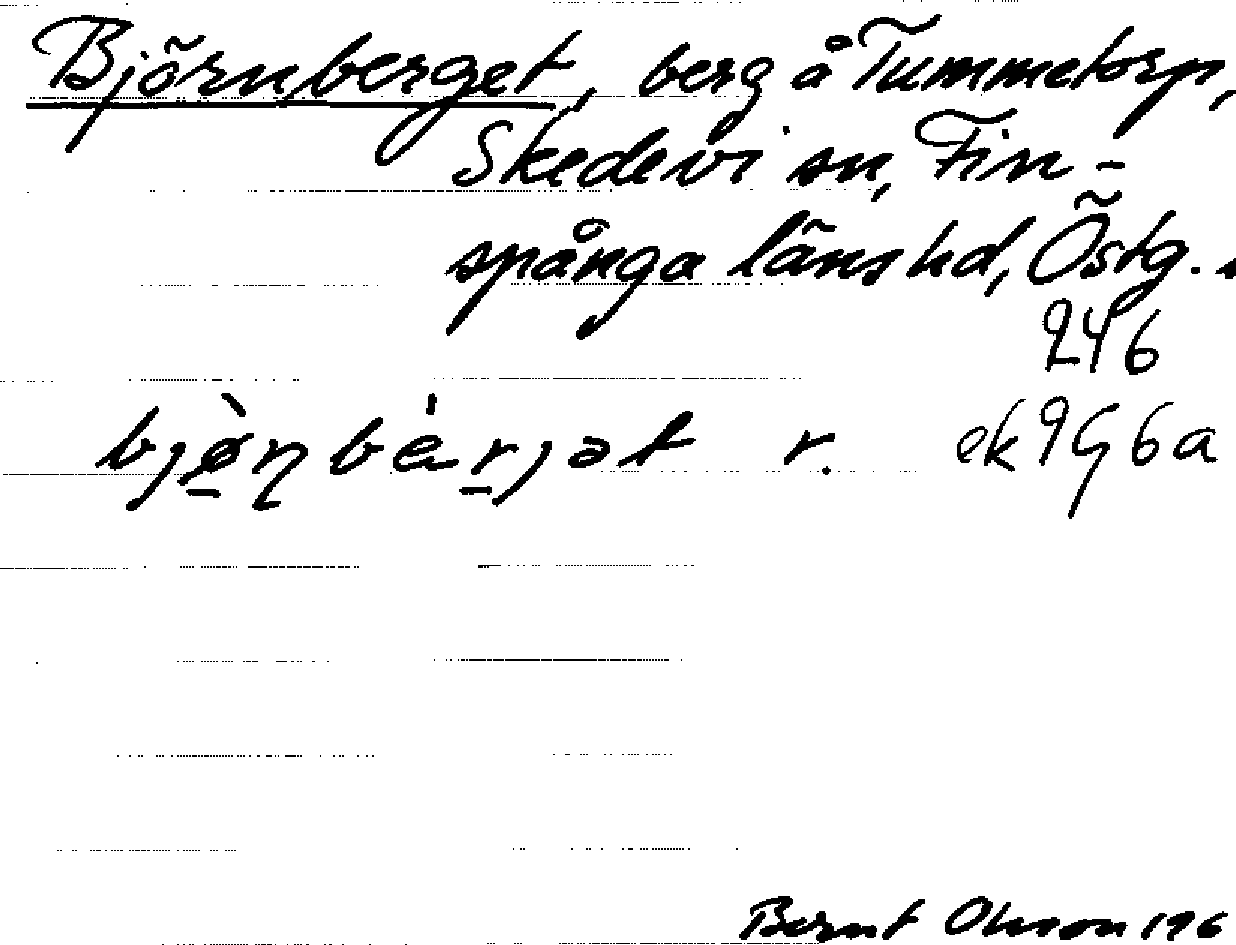 Björnberget, berg å Tummetorp,
Skedevi sn, Fin-
spånga länshd, Östg.
246
bjø̠̀ɳbèr̠jət r. ek 9G6a
Bernt Olsson 196